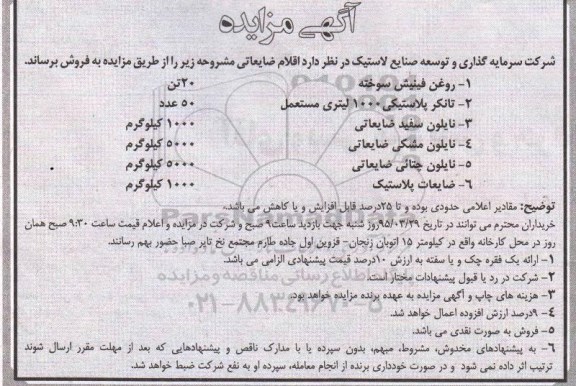 آگهی مزایده
شرکت سرمایه گذاری و توسعه صنایع لاستیک در نظر دارد اقلام ضایعاتی مشروحه زیر را از طریق مزایده به فروش برساند.
۱- روغن فینیش سوخته ۲۰تن
۲- تانکر پلاستیکی۱۰۰۰ لیتری مستعمل ۵۰ عدد
۳- نایلون سفید ضایعاتی ۱۰۰۰ کیلوگرم
۴- نایلون مشکی ضایعاتی ۵۰۰۰ کیلوگرم
۵- نایلون چتائی ضایعاتی ۵۰۰۰ کیلوگرم
۶- ضایعات پلاستیک ۱۰۰۰ کیلوگرم
توضیح: مقادیر اعلامی حدودی بوده و تا ۲۵درصد قابل افزایش و یا کاهش می باشد.
خریداران محترم می توانند در تاریخ ۹۵/۰۳/۲۹روز شنبه جهت بازدید ساعت۹ صبح و شرکت در مزایده و اعلام قیمت ساعت ۹:۳۰ صبح همان
روز در محل کارخانه واقع در کیلومتر ۱۵ اتوبان زنجان- قزوین اول جاده طارم مجتمع نخ تایر صبا حضور بهم رسانند.
۱- ارائه یک فقره چک و یا سفته به ارزش ۱۰درصد قیمت پیشنهادی الزامی می باشد.
۲- شرکت در رد یا قبول پیشنهادات مختار است.
۳- هزینه های چاپ و آگهی مزایده به عهده برنده مزایده خواهد بود.
۴- ۹درصد ارزش افزوده اعمال خواهد شد.
۵- فروش به صورت نقدی می باشد.
۶- به پیشنهادهای مخدوش، مشروط، مبهم، بدون سپرده یا با مدارک ناقص و پیشنهادهایی که بعد از مهلت مقرر ارسال شوند
ترتیب اثر داده نمی شود و در صورت خودداری برنده از انجام معامله، سپرده او به نفع شرکت ضبط خواهد شد.
ParsNamadData
۰۲۱-۸۸۳۴۹۶۷۰-۵